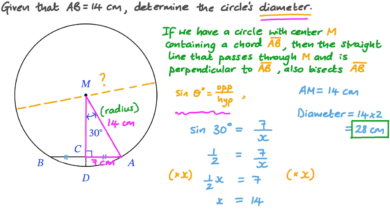 Given that AB = 14 cm, determine the circle's diameter.
If we have a circle with center M
containing a chord AB, then the straight
line that passes through M and is
perpendicular to AB, also bisects AB
?
M
(radius)
14 cm
30°
C
7 cm
B
A
D
sin θ° = opp/hyp
sin 30° = 7/x
1/2 = 7/x
(×x) 1/2 x = 7 (×x)
x = 14
AM = 14 cm
Diameter = 14×2
= 28 cm